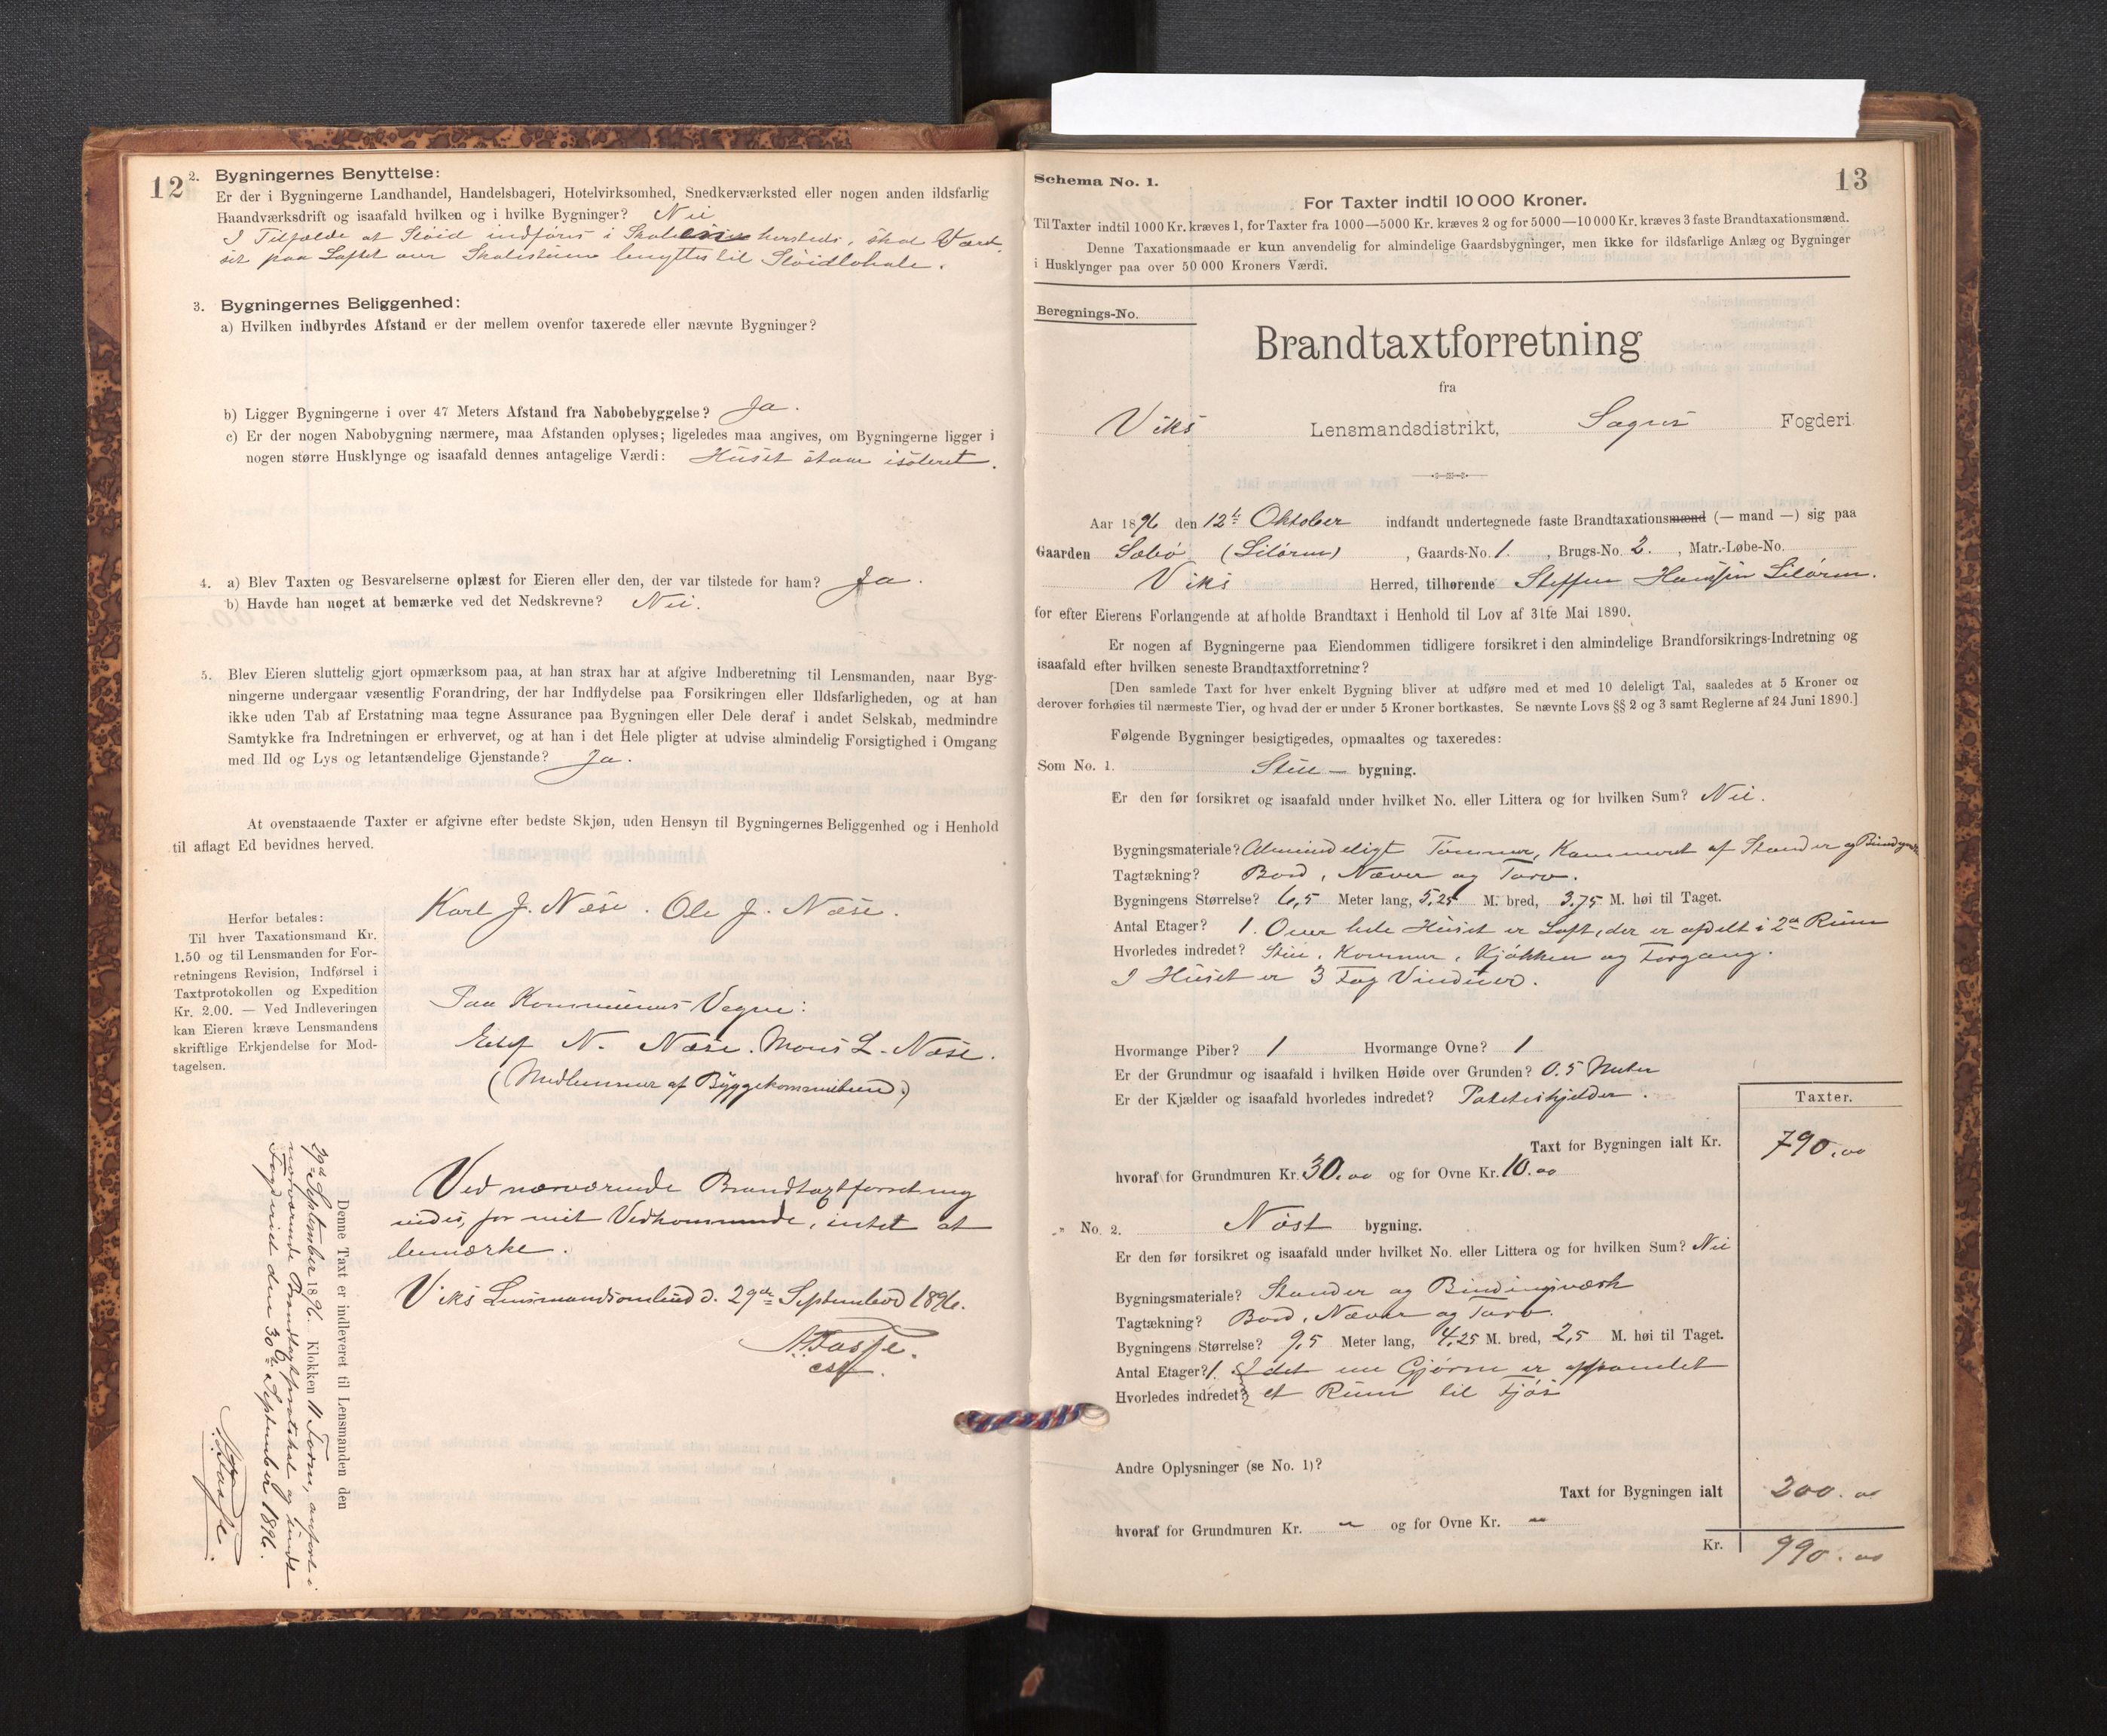 12
2. Bygningernes Benyttelse:
Er der i Bygningerne Landhandel, Handelsbageri, Hotelvirksomhed, Snedkerværksted eller nogen anden ildsfarlig
Haandværksdrift og isaafald hvilken og i hvilke Bygninger? Nei
I Tilfælde at Sløid indføres i hersteds, skal
paa Loftet over Skolestuen benyttes til Sløidlokale.
3. Bygningernes Beliggenhed:
a) Hvilken indbyrdes Afstand er der mellem ovenfor taxerede eller nævnte Bygninger?
b) Ligger Bygningerne i over 47 Meters Afstand fra Nabobebyggelse? Ja.
c) Er der nogen Nabobygning nærmere, maa Afstanden oplyses; ligeledes maa angives, om Bygningerne ligger i
nogen større Husklynge og isaafald dennes antagelige Værdi: Huset staar isoleret.
4. a) Blev Taxten og Besvarelserne oplæst for Eieren eller den, der var tilstede for ham? Ja.
b) Havde han noget at bemærke ved det Nedskrevne? Nei.
5. Blev Eieren sluttelig gjort opmærksom paa, at han strax har at afgive Indberetning til Lensmanden, naar Byg-
ningerne undergaar væsentlig Forandring, der har Indflydelse paa Forsikringen eller Ildsfarligheden, og at han
ikke uden Tab af Erstatning maa tegne Assurance paa Bygningen eller Dele deraf i andet Selskab, medmindre
Samtykke fra Indretningen er erhvervet, og at han i det Hele pligter at udvise almindelig Forsigtighed i Omgang
med Ild og Lys og letantændelige Gjenstande? Ja.
At ovenstaaende Taxter er afgivne efter bedste Skjøn, uden Hensyn til Bygningernes Beliggenhed og i Henhold
til aflagt Ed bevidnes herved.
Karl J. Næse. Ole J. Næse.
Herfor betales:
Til hver Taxationsmand Kr.
1.50 og til Lensmanden for For-
retningens Revision, Indførsel i
Taxtprotokollen og Expedition
Kr. 2.00. — Ved Indleveringen
kan Eieren kræve Lensmandens
skriftlige Erkjendelse for Mod-
tagelsen.
Paa Kommunens Vegne:
N. Næse. Mons L. Næse.
(Medlemmer af Byggekomiteen.)
Ved nærværende Brandtaxtforretning
vides, for mit Vedkommende, intet at
bemærke.
Viks Lensmandsombud d. 29de September 1896.
Denne Taxt er indleveret til Lensmanden den
29de September 1896. Klokken 11 Form, anført i
nærværende Brandtaxtprotokol og sendt
Fogderiet den 30te September 1896.
13
Schema No. 1.
For Taxter indtil 10 000 Kroner.
Til Taxter indtil 1000 Kr. kræves 1, for Taxter fra 1000—5000 Kr. kræves 2 og for 5000—10 000 Kr. kræves 3 faste Brandtaxationsmænd.
Denne Taxationsmaade er kun anvendelig for almindelige Gaardsbygninger, men ikke for ildsfarlige Anlæg og Bygninger
i Husklynger paa over 50 000 Kroners Værdi.
Beregnings-No.
Brandtaxtforretning
fra
Viks Lensmandsdistrikt, Sogns Fogderi
Aar 1896 den 12te Oktober indfandt undertegnede faste Brandtaxationsmænd (— mand —) sig paa
Gaarden Sæbø (Liløren), Gaards-No. 1., Brugs-No. 2., Matr.-Løbe-No.
Viks Herred, tilhørende Steffen Hansen Liløren.
for efter Eierens Forlangende at afholde Brandtaxt i Henhold til Lov af 31te Mai 1890.
Er nogen af Bygningerne paa Eiendommen tidligere forsikret i den almindelige Brandforsikrings-Indretning og
isaafald efter hvilken seneste Brandtaxtforretning?
[Den samlede Taxt for hver enkelt Bygning bliver at udføre med et med 10 deleligt Tal, saaledes at 5 Kroner og
derover forhøies til nærmeste Tier, og hvad der er under 5 Kroner bortkastes. Se nævnte Lovs §§ 2 og 3 samt Reglerne af 24 Juni 1890.]
Følgende Bygninger besigtigedes, opmaaltes og taxeredes:
Som No. 1. Stue — bygning.
Er den før forsikret og isaafald under hvilket No. eller Littera og for hvilken Sum? Nei.
Bygningsmateriale? Almindeligt Tømmer, Kammeret af Stænder og
Tagtækning? Bord, Næver og Torv.
Bygningens Størrelse? 6,5 Meter lang, 5,25 M. bred, 3,75 M. høi til Taget.
Antal Etager? 1. Over hele Huset er Loft, der er afdelt i 2de Rum
Hvorledes indredet? Stue, Kammer, Kjøkken og Forgang.
I Huset er 3 Fag Vinduer.
Hvormange Piber? 1 Hvormange Ovne? 1
Er der Grundmur og isaafald i hvilken Høide over Grunden? 0.5 Meter
Er der Kjælder og isaafald hvorledes indredet? Poteteskjelder.
Taxter.
Taxt for Bygningen ialt Kr. 790.00
hvoraf for Grundmuren Kr. 30.00 og for Ovne Kr. 10.00
" No. 2. Nøst bygning.
Er den før forsikret og isaafald under hvilket No. eller Littera og for hvilken Sum? Nei
Bygningsmateriale? Stænder og Bindingsværk
Tagtækning? Bord, Næver og Torv.
Bygningens Størrelse? 9,5 Meter lang, 4,25 M. bred, 2,5 M. høi til Taget.
Antal Etager? 1. I det ene Hjørne er afpanelet
Hvorledes indredet? et Rum til Fjøs
Andre Oplysninger (se No. 1)?
Taxt for Bygningen ialt 200.00
hvoraf for Grundmuren Kr. " og for Ovne Kr. "
Kr. 990.00